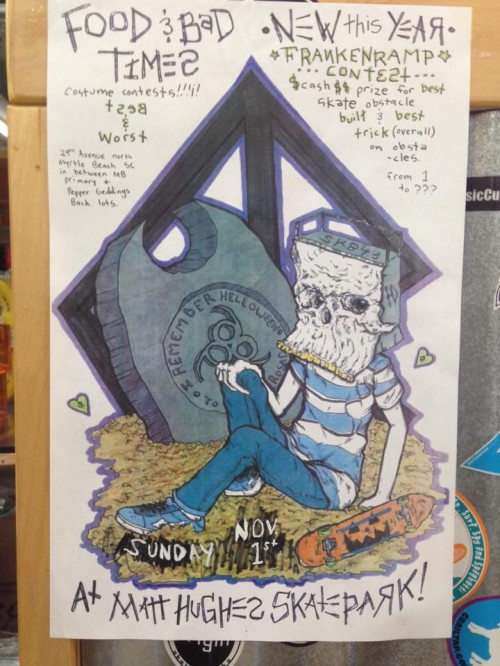 FOOD & BAD
TIMES
costume contests!!!!!
best
&
Worst
29th Avenue north
Myrtle Beach SC
in between MB
primary +
Pepper Geddings
Back lots.
•NEW this YEAR•
FRANKENRAMP
•••CONTEST•••
$cash$$ prize for best
skate obstacle
built & best
trick (overall)
on obsta
-cles.
from 1
to ???
SK843
REMEMBER HELLOWEEN
SUNDAY NOV.
1st
At MATT HUGHES SKATEPARK!
sicCu